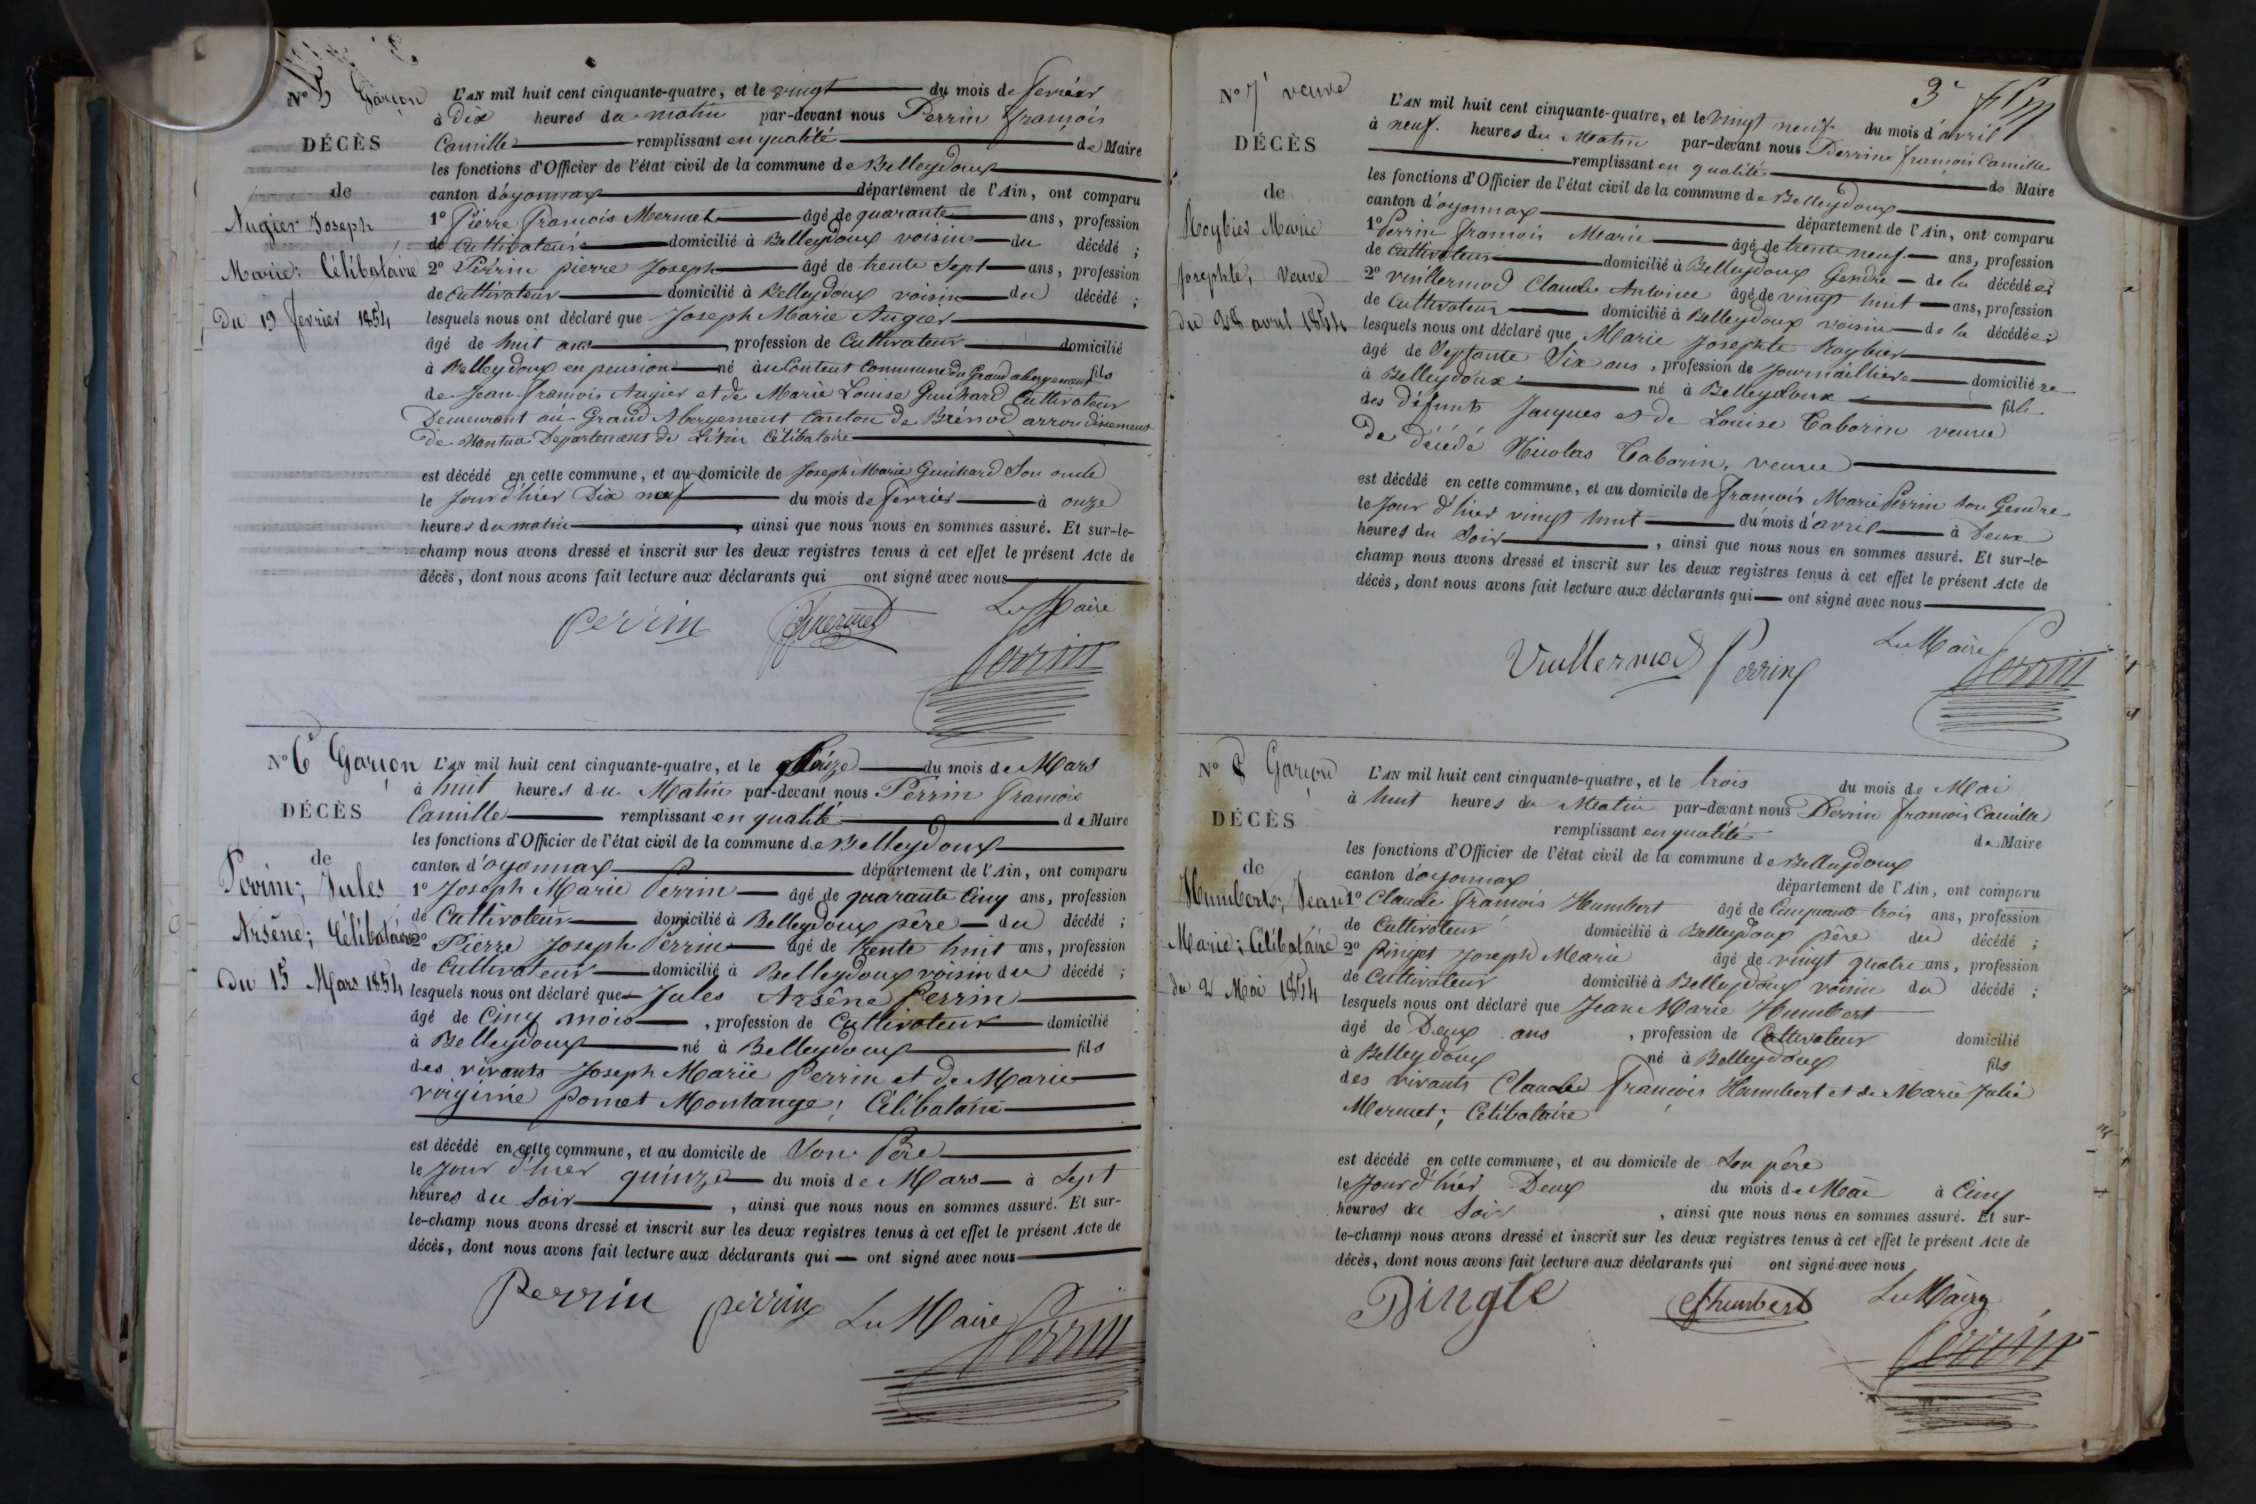 N° 5 Garçon
DÉCÈS
de
Augier Joseph
Marie; Célibataire
Du 19 fevrier 1854
L'AN mil huit cent cinquante-quatre, et le vingt du mois de fevrier
à Dix heures du matin par-devant nous Perrin françois
Camille remplissant en qualité de Maire
les fonctions d'Officier de l'état civil de la commune de Belleydoux
canton d'oyonnax département de l'Ain, ont comparu
1° Pierre françois Mermet âgé de quarante ans, profession
de Cultivateur domicilié à Belleydoux voisin du décédé;
2° Perrin pierre Joseph âgé de trente Sept ans, profession
de Cultivateur domicilié à Belleydoux voisin du décédé;
lesquels nous ont déclaré que Joseph Marie Augier
âgé de huit ans, profession de Cultivateur domicilié
à Belleydoux en pension né au Content Commune du Grand abergement fils
de Jean françois Augier et de Marie Louise Guichard Cultivateur
Demeurant au Grand Abergement Canton de Brénod arrondissement
de Nantua Departement de L'ain Célibataire
est décédé en cette commune, et au domicile de Joseph Marie Guichard Son oncle
le Jour d'hier Dix neuf du mois de fevrier à onze
heures du matin, ainsi que nous nous en sommes assuré. Et sur-le-
champ nous avons dressé et inscrit sur les deux registres tenus à cet effet le présent Acte de
décès, dont nous avons fait lecture aux déclarants qui ont signé avec nous
Perrin Mermet Le Maire
Perrin
N° 6 Garçon
DÉCÈS
de
Perrin; Jules
Arsêne; Célibataire
Du 15 Mars 1854
L'AN mil huit cent cinquante-quatre, et le Seize du mois de Mars
à huit heures du Matin par-devant nous Perrin françois
Camille remplissant en qualité de Maire
les fonctions d'Officier de l'état civil de la commune de Belleydoux
canton d'oyonnax département de l'Ain, ont comparu
1° Joseph Marie Perrin âgé de quarante Cinq ans, profession
de Cultivateur domicilié à Belleydoux père du décédé;
2° Pierre Joseph Perrin âgé de trente huit ans, profession
de Cultivateur domicilié à Belleydoux voisin du décédé;
lesquels nous ont déclaré que Jules Arsêne Perrin
âgé de Cinq mois, profession de Cultivateur domicilié
à Belleydoux né à Belleydoux fils
des vivants Joseph Marie Perrin et de Marie
virginie poncet Montange; Célibataire
est décédé en cette commune, et au domicile de Son Père
le Jour d'hier quinze du mois de Mars à Sept
heures du Soir, ainsi que nous nous en sommes assuré. Et sur-
le-champ nous avons dressé et inscrit sur les deux registres tenus à cet effet le présent Acte de
décès, dont nous avons fait lecture aux déclarants qui ont signé avec nous
Perrin perrin Le Maire
Perrin
3e
N° 7 veuve
DÉCÈS
de
Roybier Marie
Josephte, Veuve
du 28 avril 1854
L'AN mil huit cent cinquante-quatre, et le vingt neuf du mois d'avril
à neuf heures du Matin par-devant nous Perrin françois Camille
remplissant en qualité de Maire
les fonctions d'Officier de l'état civil de la commune de Belleydoux
canton d'oyonnax département de l'Ain, ont comparu
1° Perrin françois Marie âgé de trente neuf ans, profession
de Cultivateur domicilié à Belleydoux Gendre de la décédée;
2° vuillermod Claude Antoine âgé de vingt huit ans, profession
de Cultivateur domicilié à Belleydoux voisin de la décédée;
lesquels nous ont déclaré que Marie Josephte Roybier
âgé de Septante Six ans, profession de Journaillière domiciliée
à Belleydoux né à Belleydoux fille
des défunts Jacques et de Louise Taborin veuve
de décédé Nicolas Taborin, veuve
est décédé en cette commune, et au domicile de françois Marie Perrin Son Gendre
le Jour d'hier vingt huit du mois d'avril à Deux
heures du Soir, ainsi que nous nous en sommes assuré. Et sur-le-
champ nous avons dressé et inscrit sur les deux registres tenus à cet effet le présent Acte de
décès, dont nous avons fait lecture aux déclarants qui ont signé avec nous
Vuillermod Perrin Le Maire
Perrin
N° 8 Garçon
DÉCÈS
de
Humbert; Jean
Marie; Célibataire
du 2 Mai 1854
L'AN mil huit cent cinquante-quatre, et le trois du mois de Mai
à huit heures du Matin par-devant nous Perrin françois Camille
remplissant en qualité de Maire
les fonctions d'Officier de l'état civil de la commune de Belleydoux
canton d'oyonnax département de l'Ain, ont comparu
1° Claude françois Humbert âgé de Cinquante trois ans, profession
de Cultivateur domicilié à Belleydoux père du décédé;
2° Pinget Joseph Marie âgé de vingt quatre ans, profession
de Cultivateur domicilié à Belleydoux voisin du décédé;
lesquels nous ont déclaré que Jean Marie Humbert
âgé de Deux ans, profession de Cultivateur domicilié
à Belleydoux né à Belleydoux fils
des vivants Claude françois Humbert et de Marie Julie
Mermet; Célibataire
est décédé en cette commune, et au domicile de Son père
le Jour d'hier Deux du mois de Mai à Cinq
heures du Soir, ainsi que nous nous en sommes assuré. Et sur-
le-champ nous avons dressé et inscrit sur les deux registres tenus à cet effet le présent Acte de
décès, dont nous avons fait lecture aux déclarants qui ont signé avec nous
Pingle Humbert Le Maire
Perrin